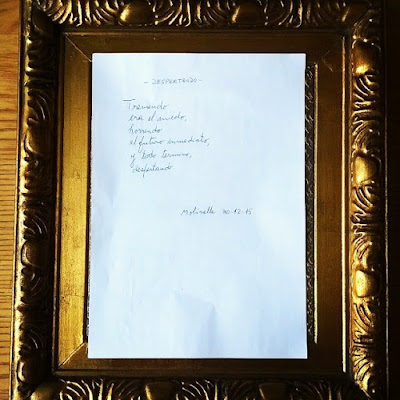 - DESPERTADO -
Tremendo
era el miedo,
horrendo
el futuro inmediato,
y todo termino,
despertando.
Molinelli 30-12-15